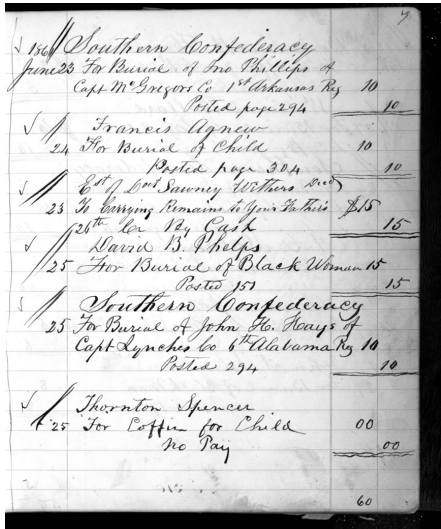 9
186 Southern Confederacy
June 23 For Burial of Jno Phillips of
Capt McGregors Co 1st Arkansas Reg 10
Posted page 294 10
Francis Agnew
24 For Burial of Child 10
Posted page 304 10
Est of Sawney Withers Decd
23 To Carrying Remains to Your Fathers $15
26th Cr By Cash 15
David B. Phelps
25 For Burial of Black Woman 15
Posted 151 15
Southern Confederacy
25 For Burial of John H. Hays of
Capt Lynches Co 6th Alabama Reg 10
Posted 294 10
Thornton Spencer
25 For Coffin for Child 00
No Pay 00
60